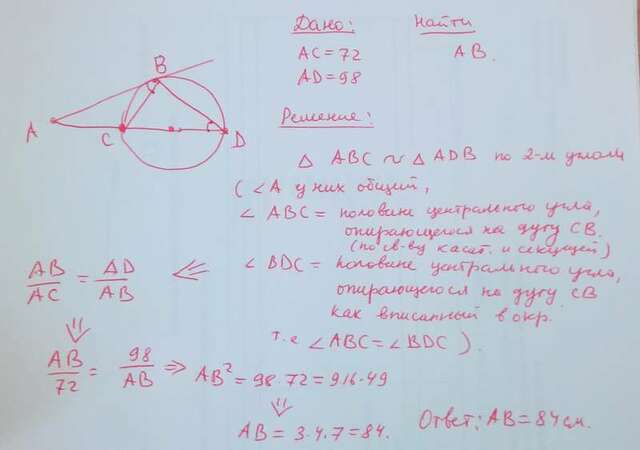 Дано:
Найти
AC = 72
AB.
AD = 98
Решение:
B
A
C
D
△ ABC ~ △ ADB по 2-м углам
( ∠A у них общий,
∠ ABC = половине центрального угла,
опирающегося на дугу CB.
(по св-ву касат. и секущей)
∠ BDC = половине центрального угла,
опирающегося на дугу CB
как вписанный в окр.
т.е ∠ABC = ∠BDC ).
AB/AC = AD/AB ⇐
⇓
AB/72 = 98/AB ⇒ AB² = 98·72 = 9·16·49
⇓
AB = 3·4·7 = 84.
Ответ: AB = 84 см.